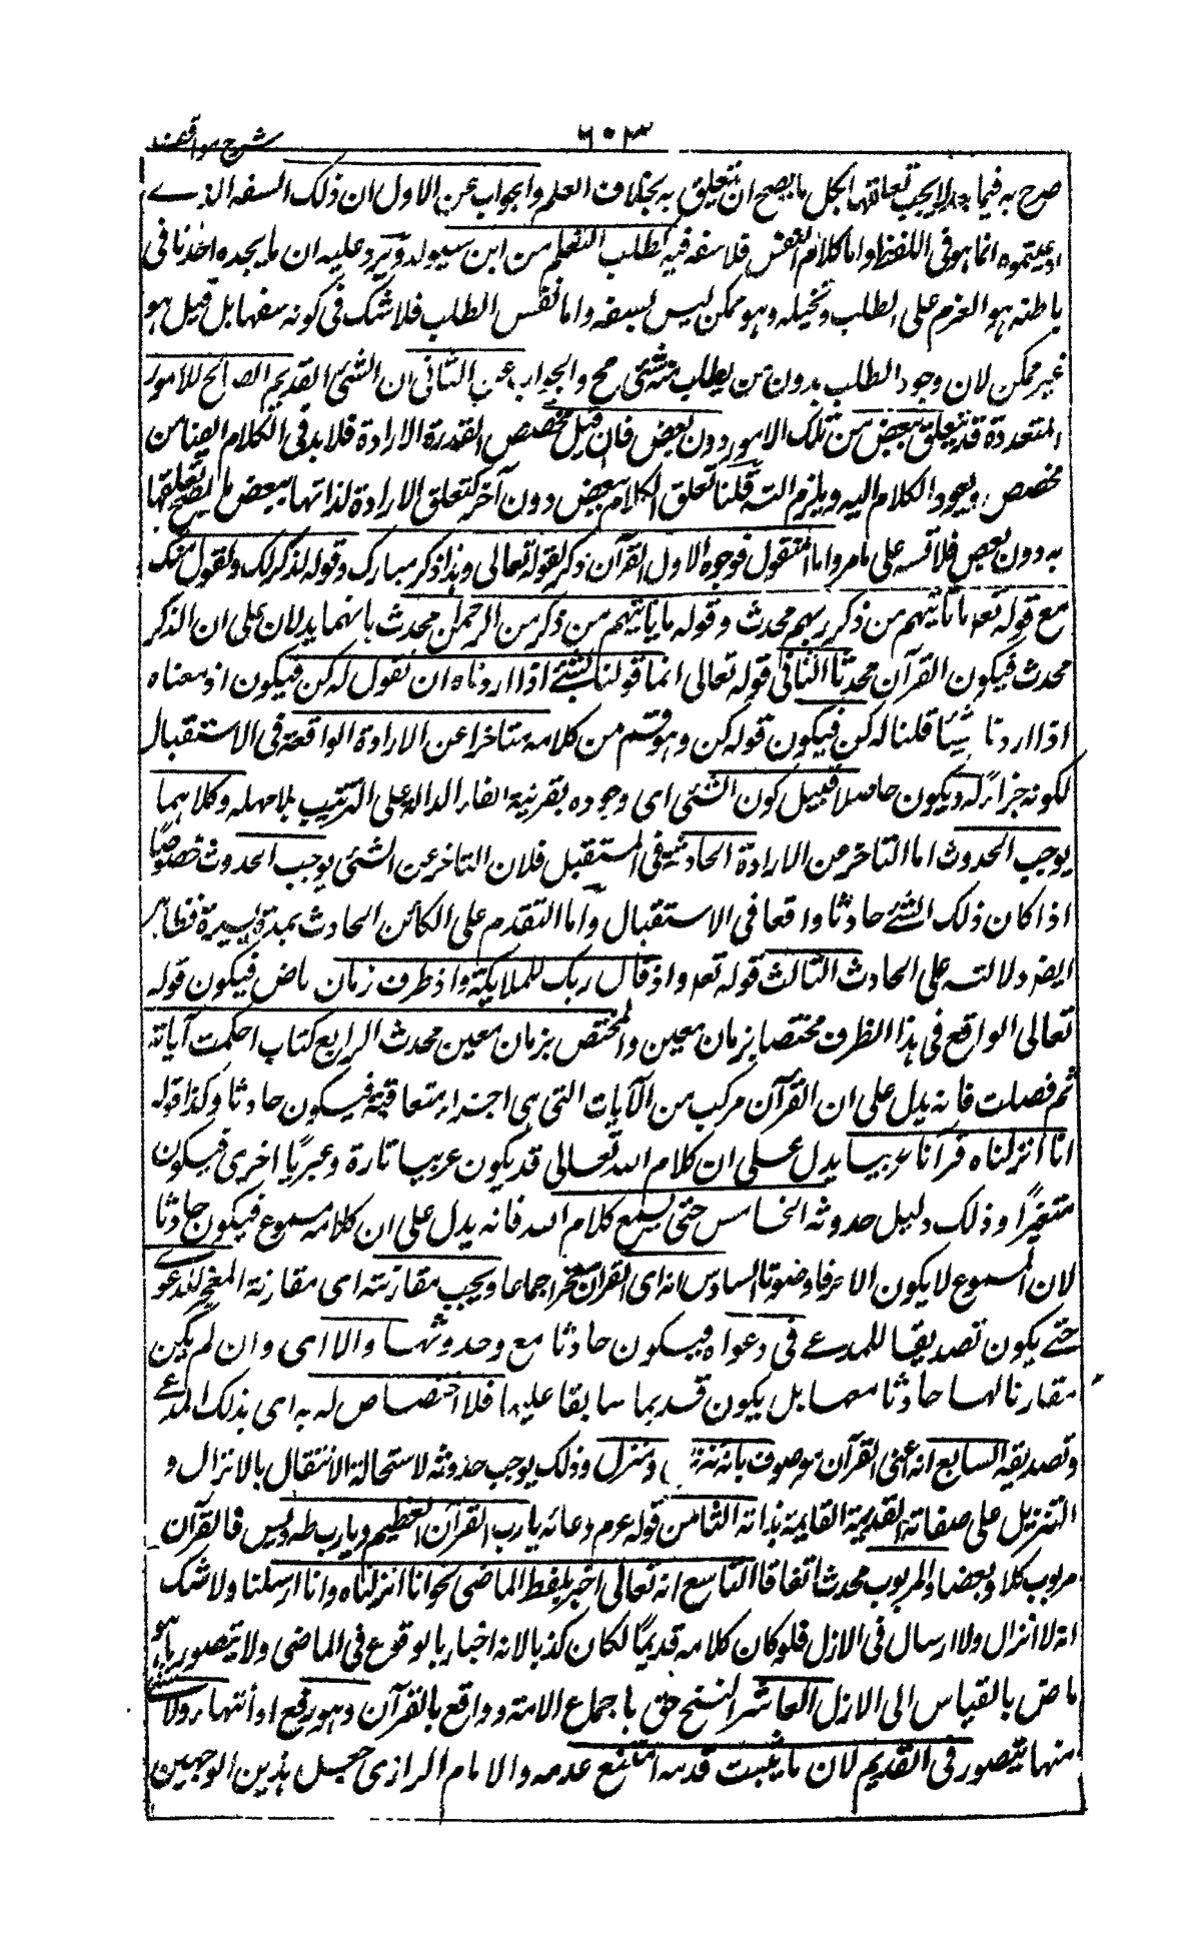 شرح مواقف
٦٠٣
صرح به فيما بعد لايجب تعلقها بكل ما يصح ان تتعلق به بخلاف العلم والجواب عن الاول ان ذلك السفه الذے
ادعيتموه انما هو فى اللفظ واما كلام النفس فلا سفه فيه كطلب التعلم من ابن سيولد ويرد عليه ان ما يجده احدنا فى
باطنه هو العزم على الطلب وتخيله وهو ممكن ليس بسفه واما نفس الطلب فلا شك فى كونه سفها بل قيل هو
غير ممكن لان وجود الطلب بدون من يطلب منه شئ مح والجواب عن الثانى ان الشئ القديم الصالح للامور
المتعددة قد يتعلق ببعض من تلك الامور دون بعض فان قيل مخصص القدرة الارادة فلا بد فى الكلام ايضا من
مخصص ويعود الكلام اليه ويلزم التسه قلنا تعلق الكلام ببعض دون آخر كتعلق الارادة لذاتها ببعض ما يصح تعلقها
به دون بعض فلا تسه على ما مر واما المنقول فوجوه الاول القرآن ذكر لقوله تعالى وهذا ذكر مبارك وقوله لذكر لك ولقومك
مع قوله تعه ما تاتيهم من ذكر ربهم محدث وقوله ما ياتيهم من ذكر من الرحمان محدث بانهما يدلان على ان الذكر
محدث فيكون القرآن محدثا الثانى قوله تعالى انما قولنا لشئے اذا اردناه ان نقول له كن فيكون اذ معناه
اذا اردنا شيئا قلنا له كن فيكون قوله كن وهو قسم من كلامه متاخرا عن الارادة الواقعة فى الاستقبال
لكونه جزاء له ويكون حاصلا قبيل كون الشئى اى وجوده بقرنية الفاء الدالة على الترتيب بلا مهلة وكلاهما
يوجب الحدوث اما التاخر عن الارادة الحادثة فى المستقبل فلان التاخر عن الشئ يوجب الحدوث خصوصًا
اذا كان ذلك الشئے حادثا واقعا فى الاستقبال واما التقدم على الكائن الحادث بمدة يسيرة فظاهر
ايضر دلالته على الحادث الثالث قوله تعه واذ قال ربك للملايكة واذ ظرف زمان ماض فيكون قوله
تعالى الواقع فى هذا الظرف مختصا بزمان معين والمختص بزمان معين محدث الرابع كتاب احكمت آياته
ثم فصلت فانه يدل على ان القرآن مركب من الآيات التى هى اجزاء متعاقبة فيكون حادثا وكذا قوله
انا انزلناه قرآنا عربيا يدل على ان كلام الله تعالى قد يكون عربيا تارة وعبريًا اخرى فيكون
متغيرًا وذلك دليل حدوثه الخامس حتى يسمع كلام الله فانه يدل على ان كلامه مسموع فيكون حادثا
لان المسموع لا يكون الا حرفا وصوتا السادس انه اى القرآن معجز اجماعا ويجب مقارنته اى مقارنة المعجز للدعوے
حتے يكون تصديقا للمدعے فى دعواه فيكون حادثا مع حدوثها والا اى وان لم يكن
مقارنا لها حادثا معها بل يكون قديما سابقا عليها فلا اختصاص له به اى بذلك المدعے
وتصديقه السابع انه اعنى القرآن موصوف بانه منزل وتنزيل وذلك يوجب حدوثه لاستحالة الانتقال بالانزال و
التنزيل على صفاته القديمة القايمة بذاته الثامن قوله عرم دعائه يا رب القرآن العظيم ويا رب طه ويس فالقرآن
مربوب كلا وبعضا والمربوب محدث اتفاقا التاسع انه تعالى اخبر بلفظ الماضى نحو انا انزلناه وانا ارسلنا ولا شك
انه لا انزال ولا ارسال فى الازل فلو كان كلامه قديمًا لكان كذبا لانه اخبار بالوقوع فى الماضى ولا يتصور ما هو
ماض بالقياس الى الازل العاشر النسخ حق باجماع الامة وواقع بالقرآن وهو رفع او انتهاء ولا شئے
منها يتصور فى القديم لان ما يثبت قدمه امتنع عدمه والامام الرازى جعل هذين الوجهين